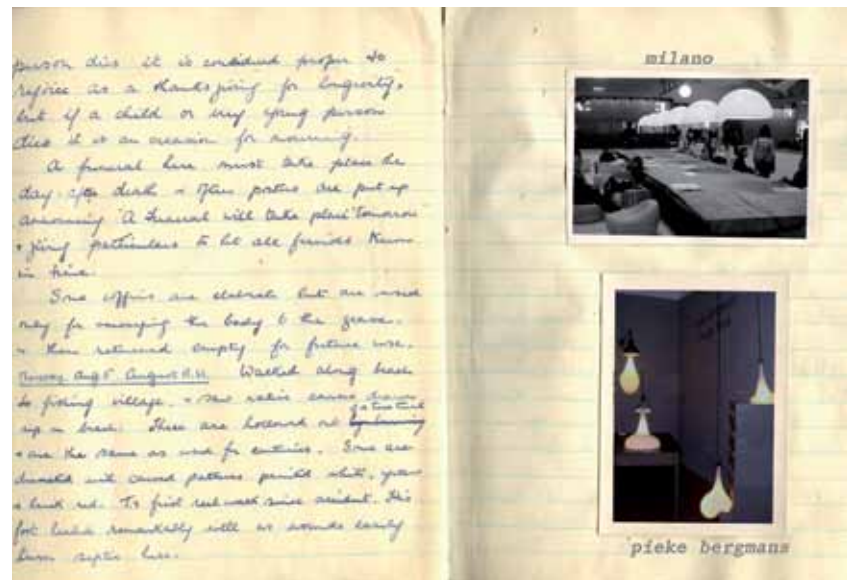 person dies it is considered proper to
rejoice as a thanksgiving for longevity,
but if a child or very young person
dies it is an occasion for mourning.
A funeral here must take place the
day after death & often posters are put up
announcing 'A Funeral will take place tomorrow
& giving particulars to let all friends know
in time.
Some coffins are elaborate but are used
only for carrying the body to the grave.
& then returned empty for future use.
Aug 5 August Walked along beach
to fishing village, & saw native canoes drawn
up on beach. These are hollowed out
& are the same as used for centuries. Some are
decorated with carved patterns painted white, green
& brick red. T's first real walk since accident. His
foot healed remarkably well as wounds easily
turn septic here.
milano
pieke bergmans